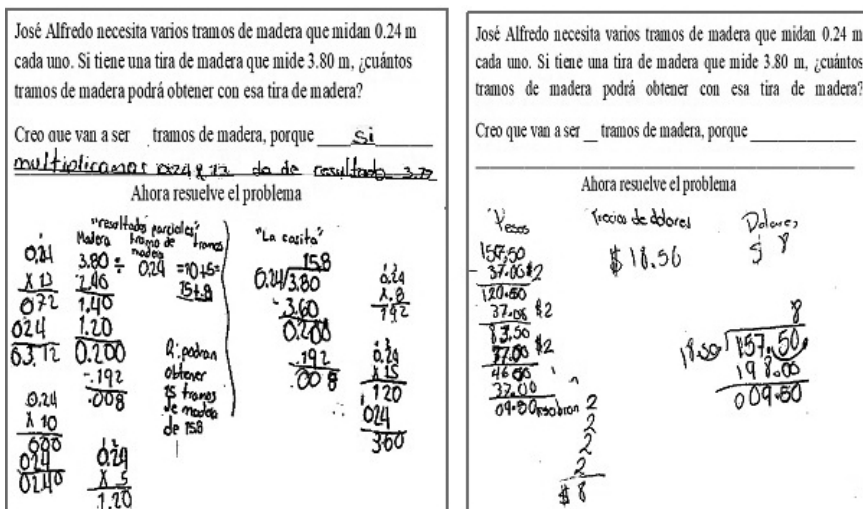 José Alfredo necesita varios tramos de madera que midan 0.24 m
cada uno. Si tiene una tira de madera que mide 3.80 m, ¿cuántos
tramos de madera podrá obtener con esa tira de madera?
Creo que van a ser tramos de madera, porque si
multiplicamos 0.24 x 13 da de resultado
Ahora resuelve el problema
"resultados parciales"
Madera tramo de madera tramos
3.80 ÷ 0.24 =10+5=
15+.8
2.40
1.40
1.20
0.200
-.192
.008
X 13
072
024
03.12
0.24
X 10
000
024
0240
0.24
X 5
1.20
R: podran
obtener
15 tramos
de madera
de 15.8
"La casita"
15.8
0.24/3.80
- 3.60
0.200
-.192
.008
0.24
X .8
192
0.24
X 15
120
024
360
José Alfredo necesita varios tramos de madera que midan 0.24 m
cada uno. Si tiene una tira de madera que mide 3.80 m, ¿cuántos
tramos de madera podrá obtener con esa tira de madera?
Creo que van a ser __ tramos de madera, porque
Ahora resuelve el problema
Pesos
157.50
- 37.00 $2
120.50
37.00 $2
83.50
37.00 $2
46.50
37.00
09.50
2
2
2
2
$ 8
Precios de dolores
$ 18.50
Dolares
$ 8
8
18.50 157.50
09.50